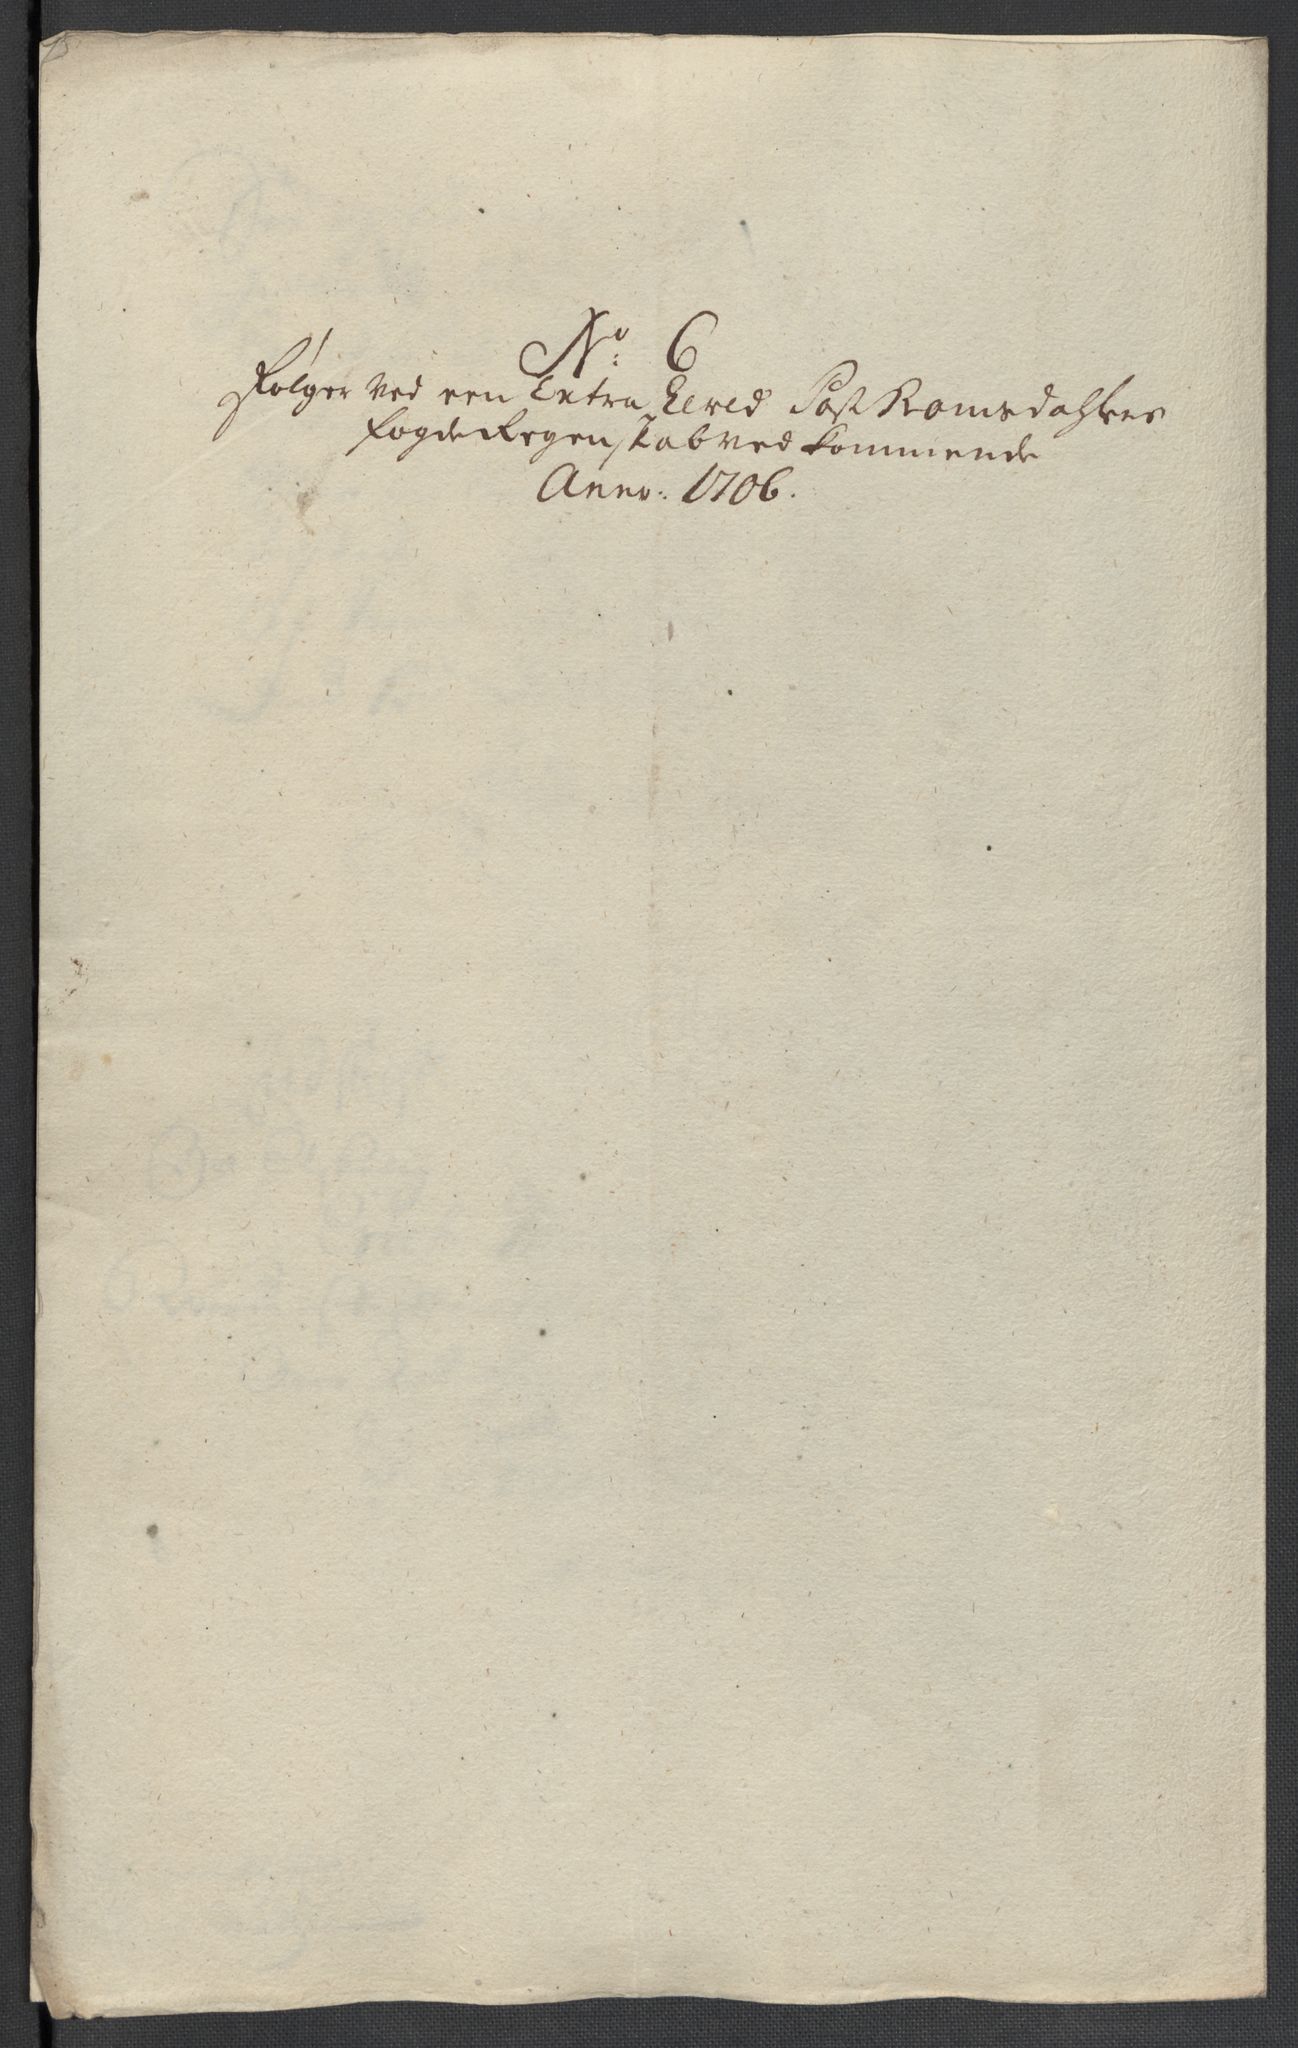 No: 6
Følger ved een Extra Post Romsdahlens
fogderegenskab ved kommende
Anno: 1706.